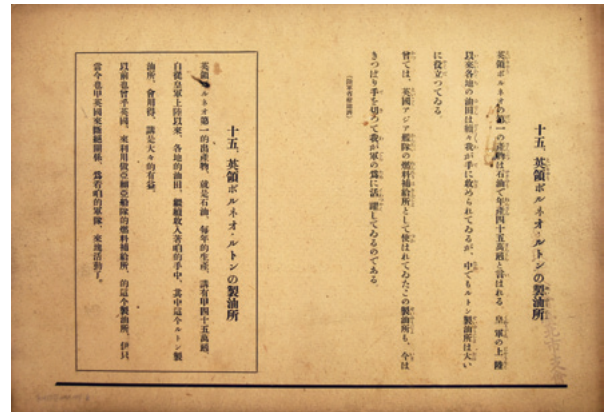 十五、英領ボルネオ・ルトンの製油所
英領ボルネオの第一の産物は石油で年産四十五萬噸と言はれる。皇軍の上陸
以來各地の油田は續々我が手に收められてゐるが、中でもルトン製油所は大い
に役立つてゐる。
曾ては、英國アジア艦隊の燃料補給所として使はれてゐたこの製油所も、今は
きつぱり手を切つて我が軍の爲に活躍してゐるのである。
十五、英領ボルネオ・ルトンの製油所
英領ボルネオ第一的出産物、就是石油、每年的生産、講有甲四十五萬噸、
自從皇軍上陸以來、各地的油田、繼續收入著咱的手中、其中這个ルトン製
油所、會用得、講是大々的有益。
以前也曾乎英國、來利用做亞細亞船隊的燃料補給所、的這个製油所、伊只
當今也甲英國來斷絕關係、爲着咱的軍隊、來塊活動了。